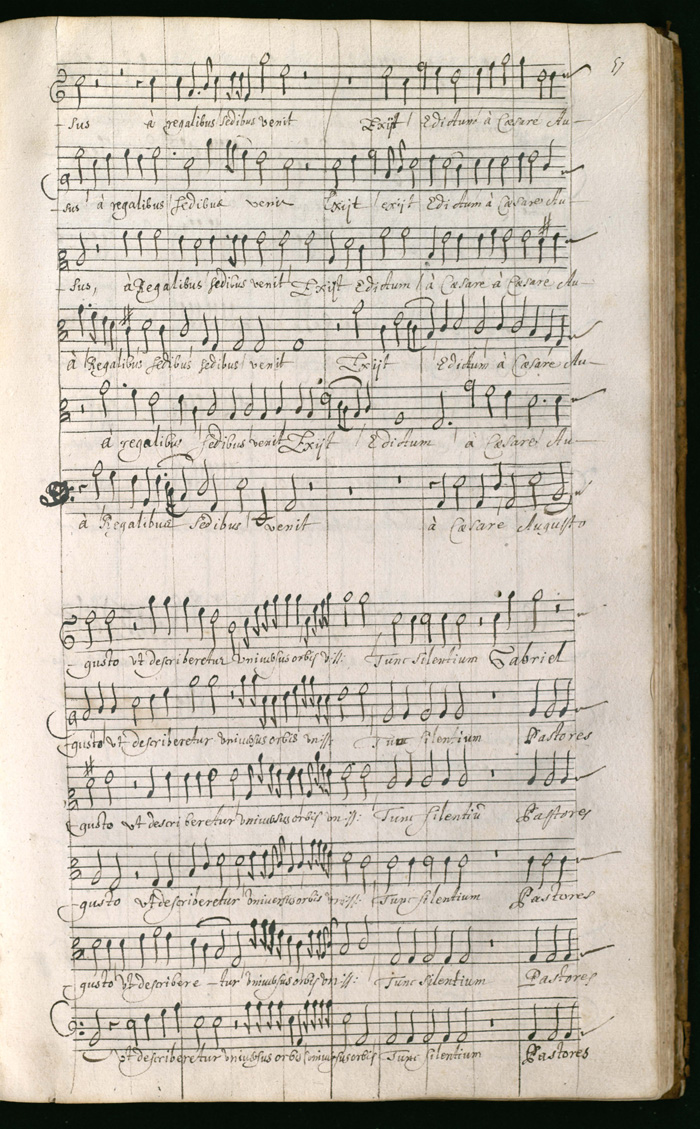 57
- sus à regalibus sedibus venit Exijt Edictum à Cæsare Au-
- sus à regalibus sedibus venit Exijt exijt Edictum à Cæsare Au-
- sus, à Regalibus sedibus venit Exijt Edictum à Cæsare à Cæsare Au-
à Regalibus sedibus sedibus venit Exijt Edictum à Cæsare Au-
à regalibus sedibus venit Exijt Edictum à Cæsare Au-
à Regalibus sedibus venit à Cæsare Augusto
- gusto Vt describeretur vniversus orbis v:ij: Tunc silentium Gabriel
gusto Vt describeretur vniversus orbis vn:ij: Tunc silentium Pastores
gusto Vt describeretur vniversus orbis vn:ij: Tunc silentiũ Pastores
gusto Vt describeretur vniversus orbis vn:ij: Tunc silentium Pastores
gusto Vt describere - tur vniversus orbis vn:ij: Tunc silentium Pastores
Vt describeretur vniversus orbis vniversus orbis Tunc silentium Pastores